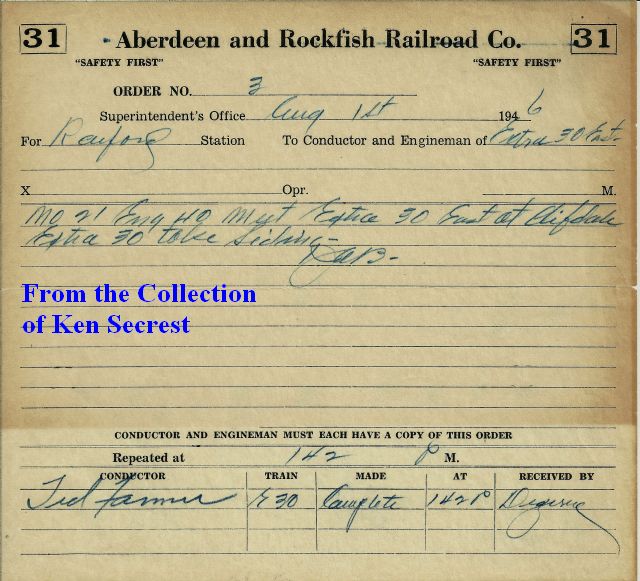 31 Aberdeen and Rockfish Railroad Co. 31
"SAFETY FIRST" "SAFETY FIRST"
ORDER NO. 3
Superintendent's Office Aug 1st 1946
For Raeford Station To Conductor and Engineman of Extra 30 East-
X Opr. M.
No 21 Eng 40 Meet Extra 30 East at Clifdale
Extra 30 take Siding-
JAB-
From the Collection
of Ken Secrest
CONDUCTOR AND ENGINEMAN MUST EACH HAVE A COPY OF THIS ORDER
Repeated at 142 P M.
CONDUCTOR TRAIN MADE AT RECEIVED BY
Ted Farmer 30 Complete 142P